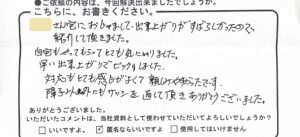 ●ご依頼の内容は、今回解決出来ましたでしょうか。
こちらに、お書きください。
さんの宅におじゃましまして、出来上がりがすばらしかったので、
紹介して頂きました。
自宅もやってもらってとても気に入りました。
早い出来上がりでビックリしました。
対応もとても感じがよくて親しみやすかったです。
障子以外にもサッシを直して頂きありがとうございました。
ありがとうございました。
いただいたコメントは、当社資料として使わせていただいてよろしいでしょうか？
□ いいですよ。 ☑ 匿名ならいいですよ □ 使用してはいけません